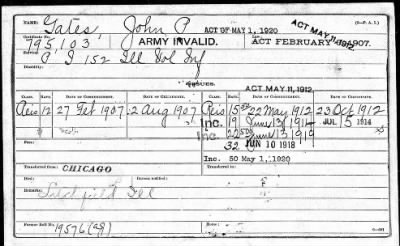 NAME: Gates, John P. ACT OF MAY 1, 1920 (3-P. A. I.)
CERTIFICATE: ACT MAY 11, 1912.
795,103. ARMY INVALID. ACT FEBRUARY 6, 1907.
SERVICE:
I 152 Ill Vol Inf
DISABILITY:
ISSUES.
ACT MAY 11, 1912.
CLASS. RATE. DATE OF COMMENCEMENT. DATE OF CERTIFICATE. CLASS. RATE. DATE OF COMMENCEMENT. DATE OF CERTIFICATE.
Reis 12 27 Feb 1907 2 Aug 1907 Reis 15 22 May 1912 23 Oct 1912
Inc. 19 June 13 1914 JUL 15 1914
22.50 June 13 1919
32 JUN 10 1918
Inc. 50 May 1, 1920
Transferred from CHICAGO
Died
Litchfield Ill
Transferred to
Former Roll No. 19576